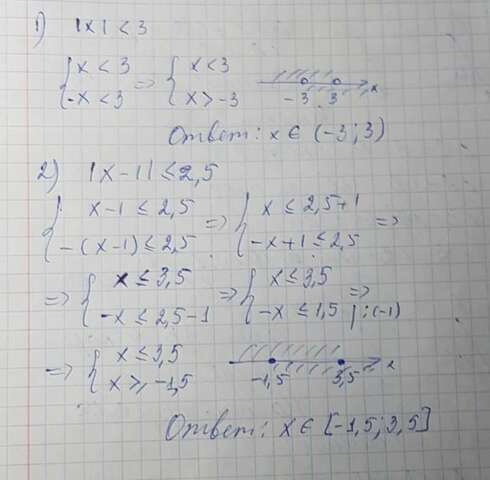 1) |x| < 3
{ x < 3 => { x < 3
-x < 3 x > -3 -3 3 x
Ответ: x ∈ (-3; 3)
2) |x-1| ≤ 2,5
{ x-1 ≤ 2,5 => { x ≤ 2,5+1 =>
-(x-1) ≤ 2,5 -x+1 ≤ 2,5
=> { x ≤ 3,5 => { x ≤ 3,5 =>
-x ≤ 2,5-1 -x ≤ 1,5 |:(-1)
=> { x ≤ 3,5 -1,5 3,5 x
x ≥ -1,5
Ответ: x ∈ [-1,5; 3,5]